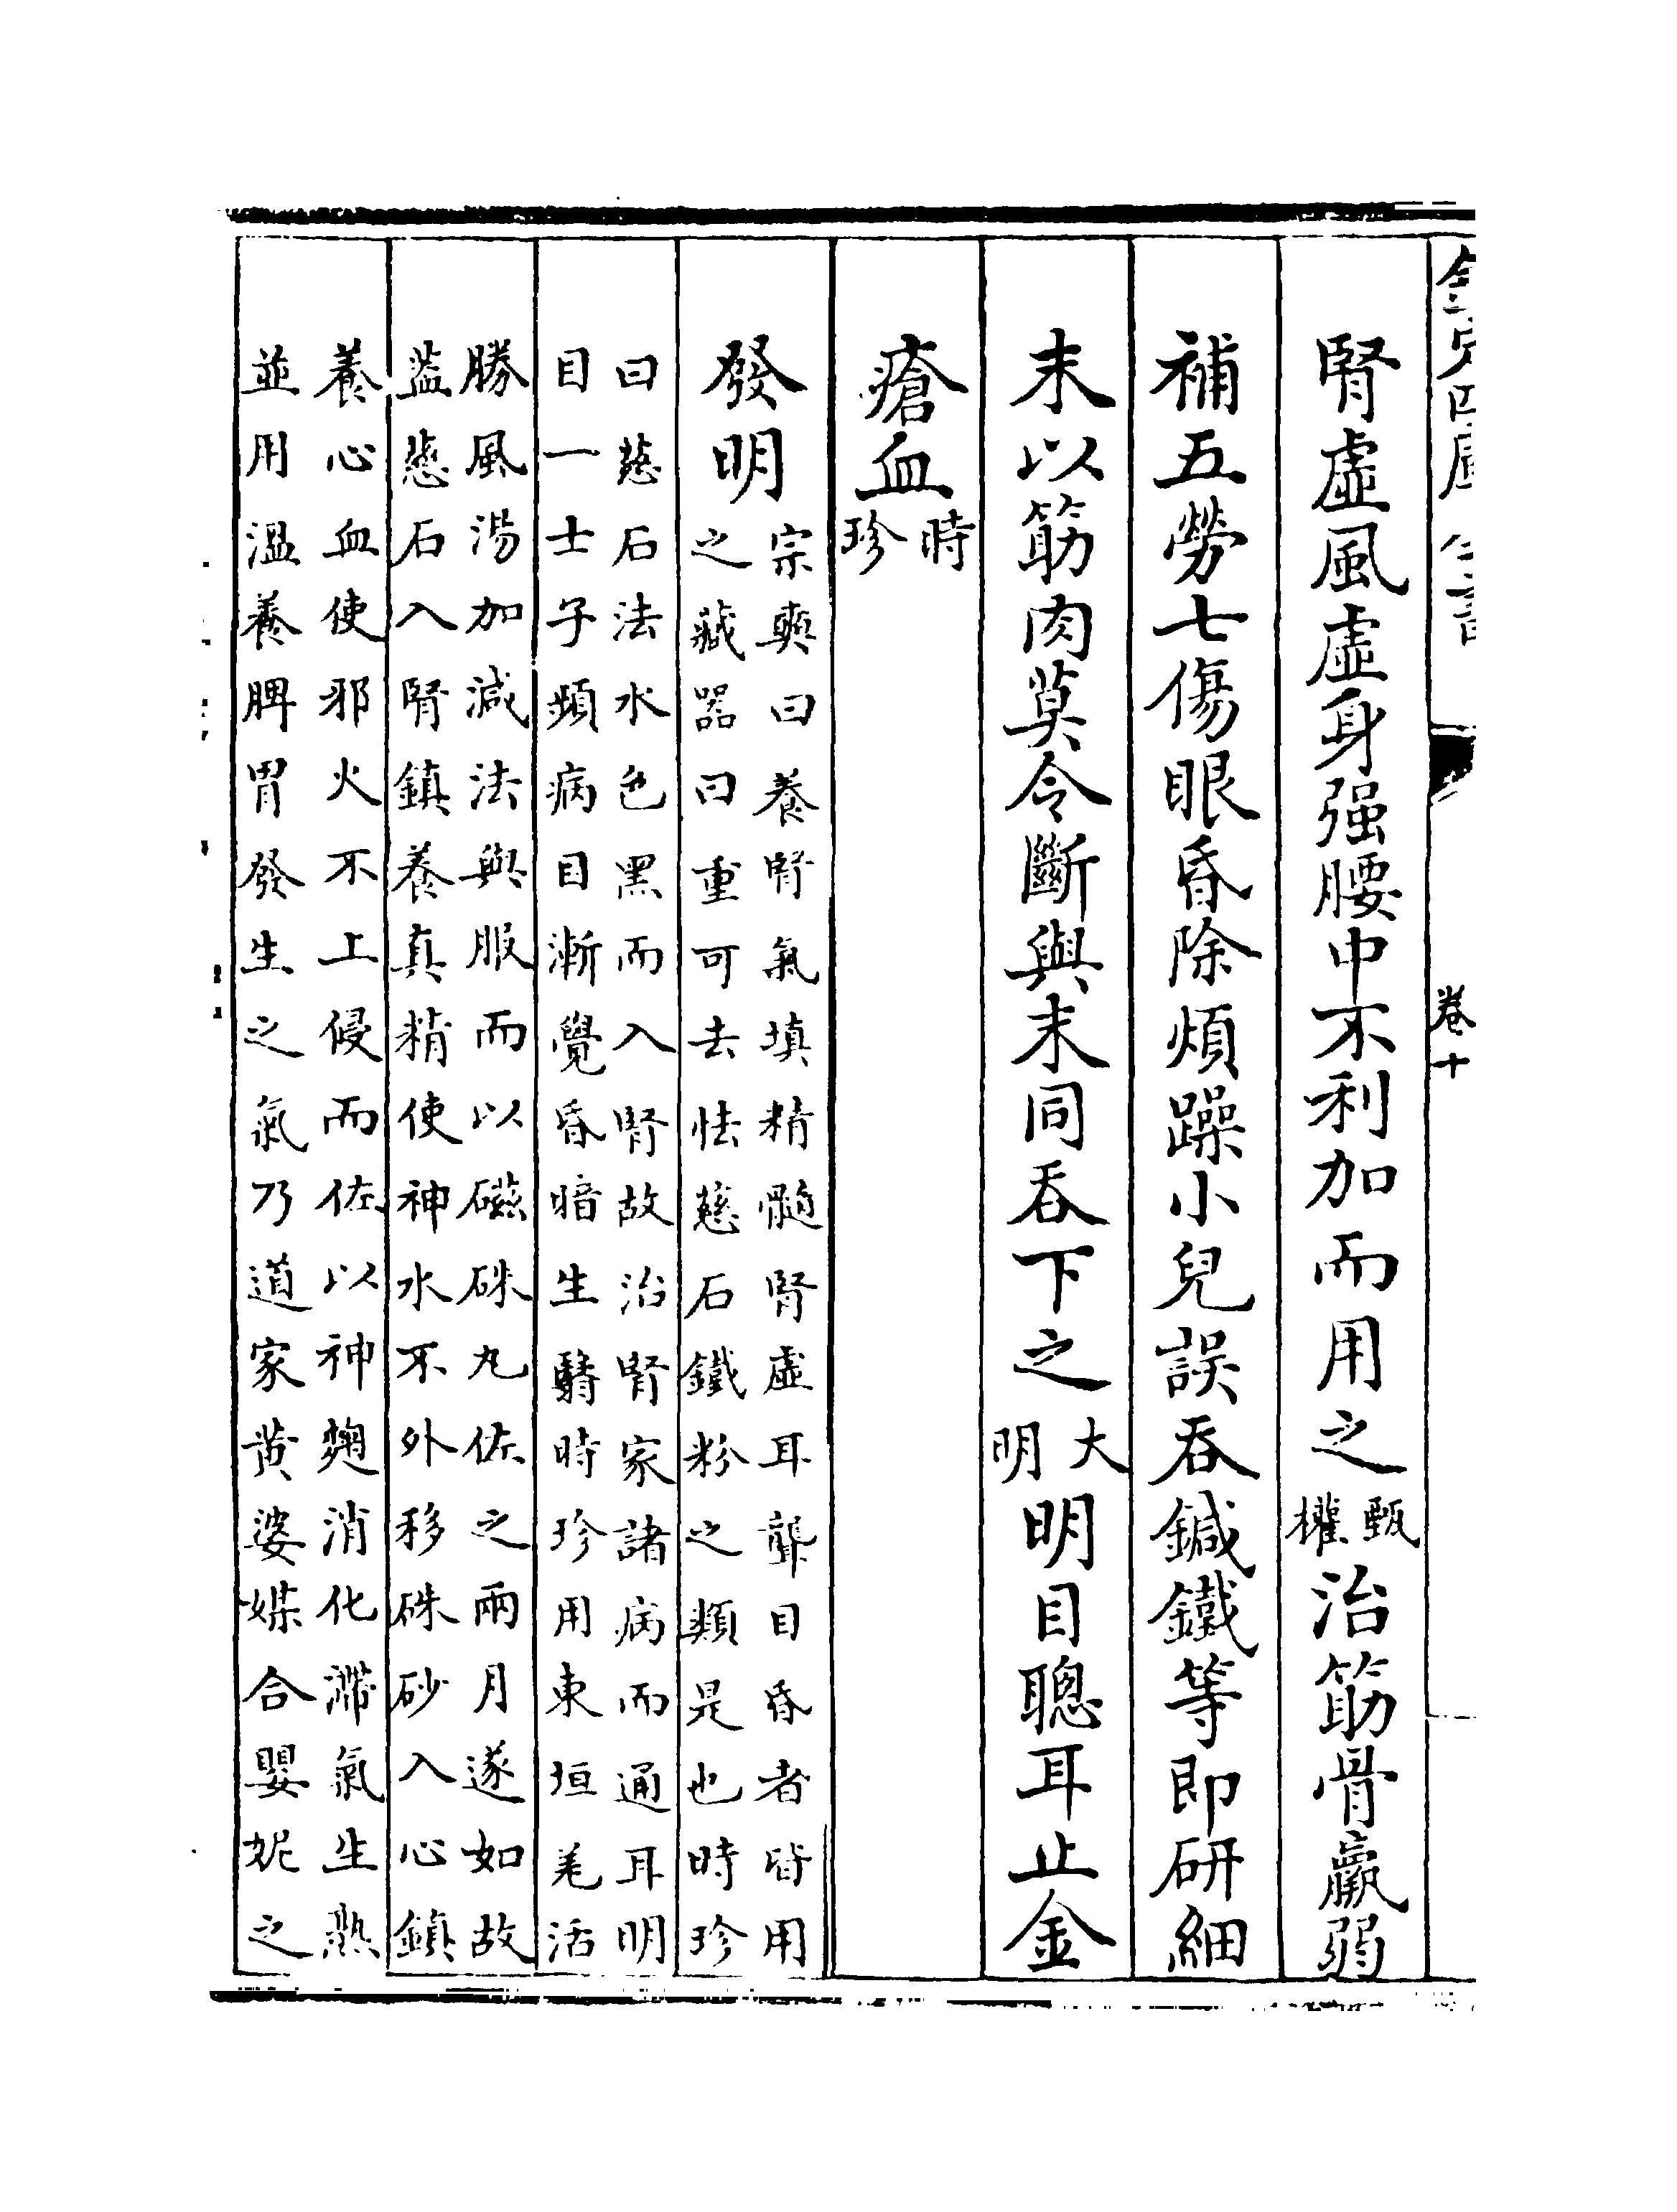 欽定四庫全書
卷十
腎虛風虛身强腰中不利加而用之甄權治筋骨羸弱
補五勞七傷眼昏除煩躁小兒誤吞鍼鐵等即研細
末以筋肉莫令斷與末同吞下之大明明目聰耳止金
瘡血時珍
發明宗奭曰養腎氣填精髓腎虛耳聾目昏者皆用
之藏器曰重可去怯慈石鐵粉之類是也時珍
曰慈石法水色黑而入腎故治腎家諸病而通耳明
目一士子頻病目漸覺昏暗生翳時珍用東垣羌活
勝風湯加減法與服而以磁硃丸佐之兩月遂如故
葢慈石入腎鎮養真精使神水不外移硃砂入心鎮
養心血使邪火不上侵而佐以神麴消化滯氣生熟
並用溫養脾胃發生之氣乃道家黄婆媒合嬰妮之